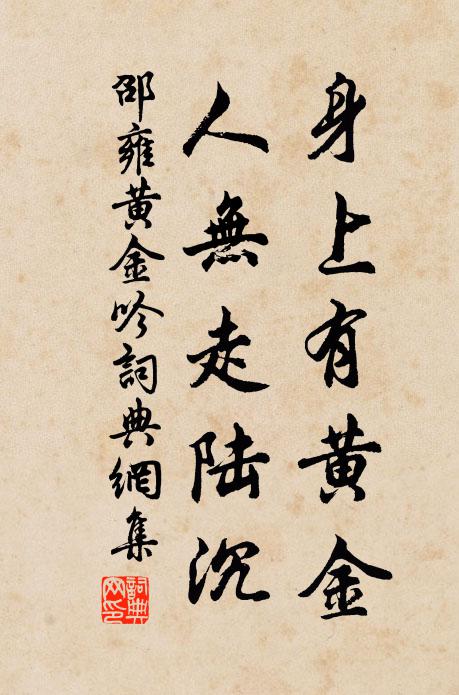 身上有黃金
人無走陸沉
邵雍黃金吟詞典網集
詞典網印